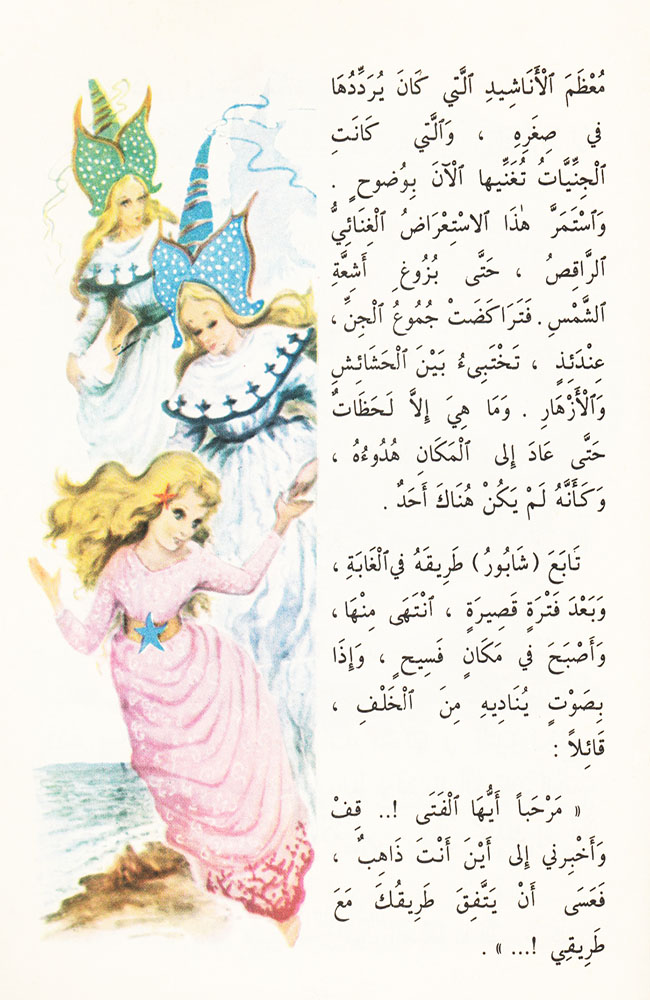 مُعْظَمَ ٱلْأَنَاشِيدِ ٱلَّتي كَانَ يُرَدِّدُهَا
في صِغَرِهِ ، وَٱلَّتي كَانَتِ
ٱلْجِنِّيَّاتُ تُغَنِّيها ٱلْآنَ بِوُضوحٍ .
وَٱسْتَمَرَّ هٰذَا ٱلاسْتِعْرَاضُ ٱلْغِنَائِيُّ
ٱلرَّاقِصُ ، حَتَّى بُزُوغِ أَشِعَّةِ
ٱلشَّمْسِ . فَتَرَاكَضَتْ جُمُوعُ ٱلْجِنِّ ،
عِنْدَئِذٍ ، تَخْتَبِىءُ بَيْنَ ٱلْحَشَائِشِ
وَٱلْأَزْهَارِ . وَمَا هِيَ إِلاَّ لَحَظَاتٌ
حَتَّى عَادَ إِلى ٱلْمَكَانِ هُدُوءُهُ ،
وَكَأَنَّهُ لَمْ يَكُنْ هُنَاكَ أَحَدٌ .
تَابَعَ (شَابُورُ) طَرِيقَهُ في ٱلْغَابَةِ ،
وَبَعْدَ فَتْرَةٍ قَصِيرَةٍ ، ٱنْتَهَى مِنْهَا ،
وَأَصْبَحَ في مَكَانٍ فَسِيحٍ ، وَإِذَا
بِصَوْتٍ يُنَادِيهِ مِنَ ٱلْخَلْفِ ،
قَائِلاً :
« مَرْحَباً أَيُّهَا ٱلْفَتَى !.. قِفْ
وَأَخْبِرني إِلى أَيْنَ أَنْتَ ذَاهِبٌ ،
فَعَسَى أَنْ يَتَّفِقَ طَرِيقُكَ مَعَ
طَرِيقِي !... » .